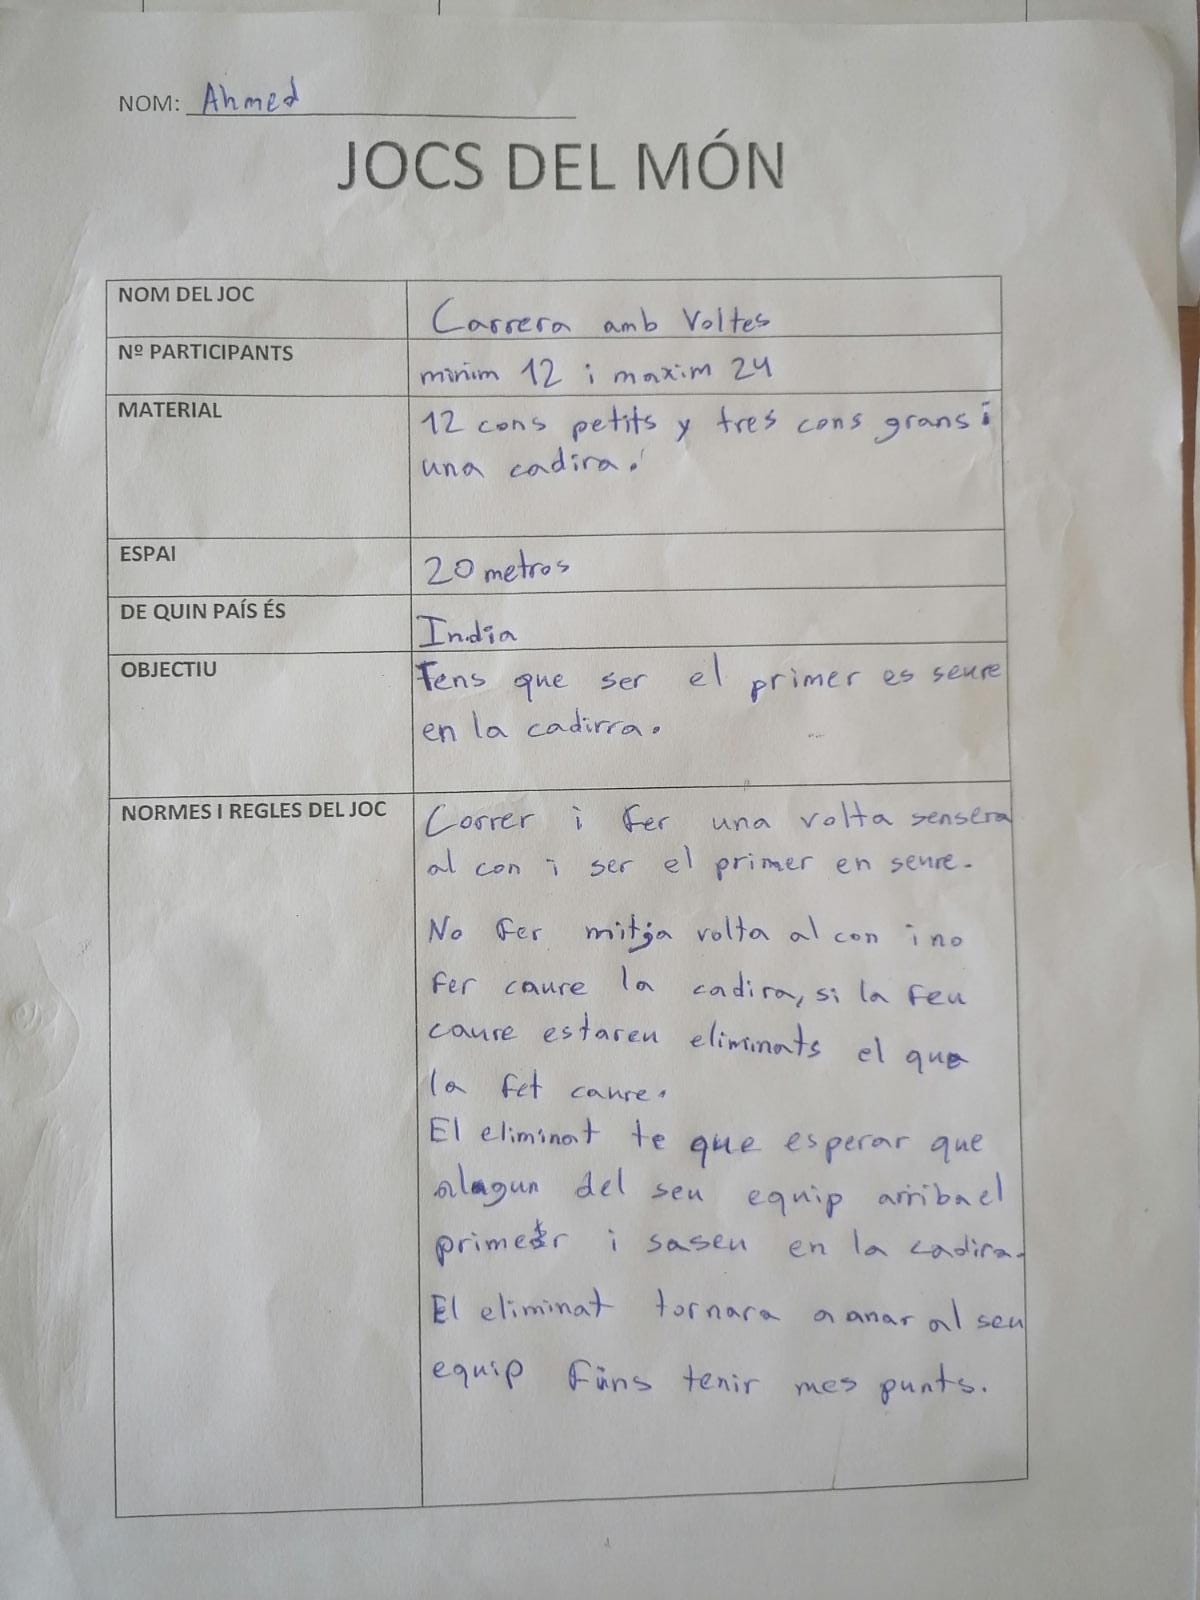 NOM: Ahmed
JOCS DEL MÓN
NOM DEL JOC
Carrera amb Voltes
Nº PARTICIPANTS
minim 12 i maxim 24
MATERIAL
12 cons petits y tres cons grans i
una cadira.
ESPAI
20 metros
DE QUIN PAÍS ÉS
India
OBJECTIU
Tens que ser el primer es seure
en la cadirra.
NORMES I REGLES DEL JOC
Correr i fer una volta sensera
al con i ser el primer en seure.
No fer mitja volta al con i no
fer caure la cadira, si la feu
caure estareu eliminats el que
la fet caure.
El eliminat te que esperar que
alagun del seu equip arriba el
primer i saseu en la cadira.
El eliminat tornara a anar al seu
equip fins tenir mes punts.